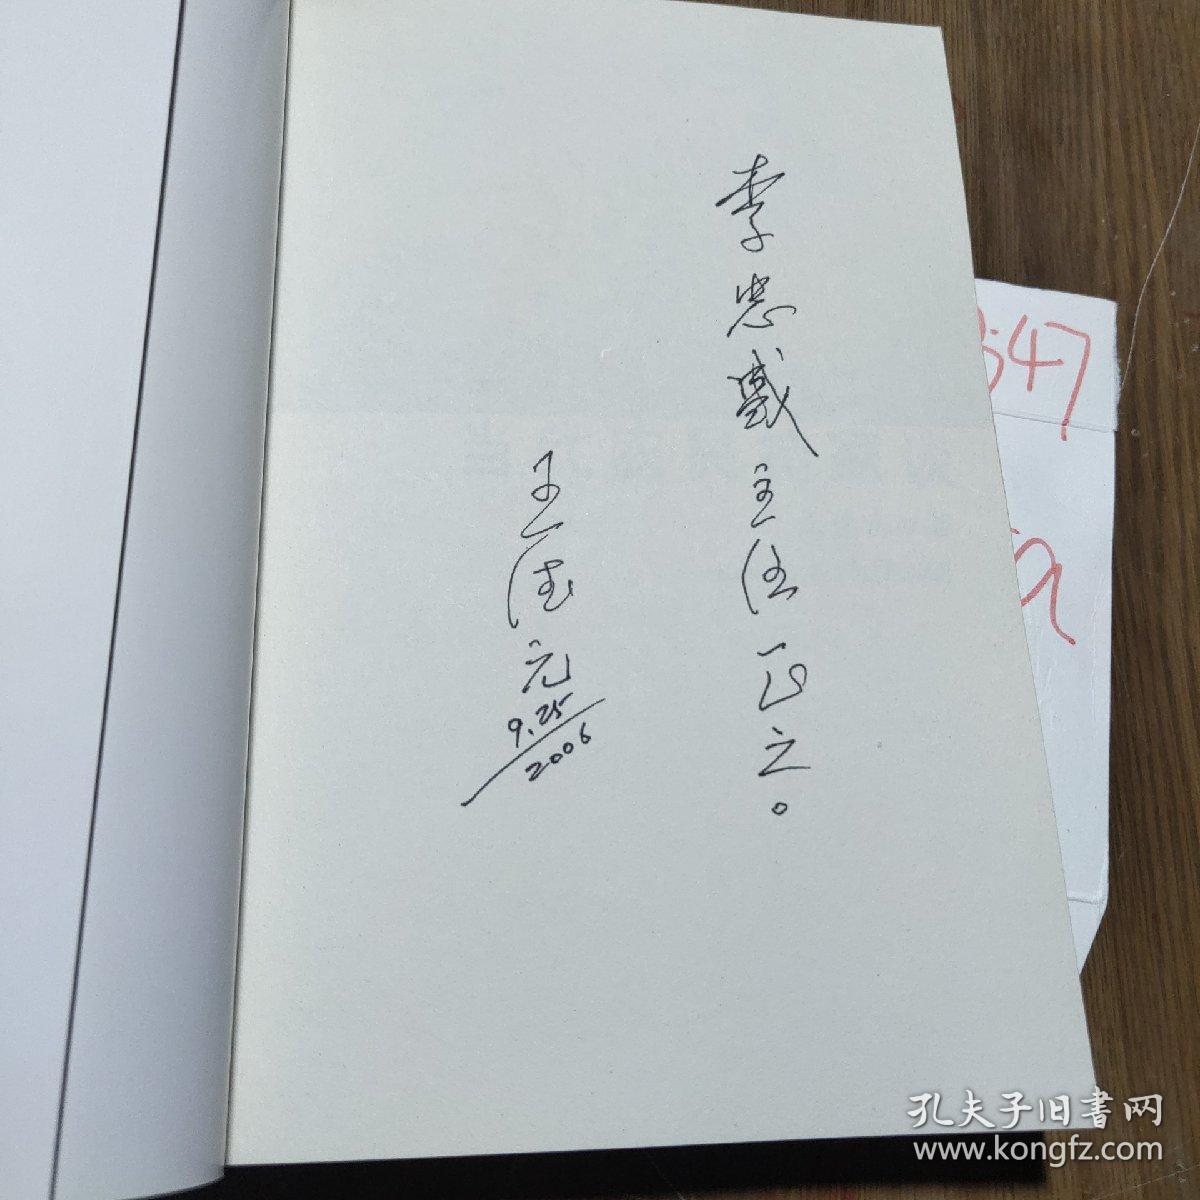 李忠盛主任正之。
王德元
9.25
2006
547
孔夫子旧书网
www.kongfz.com